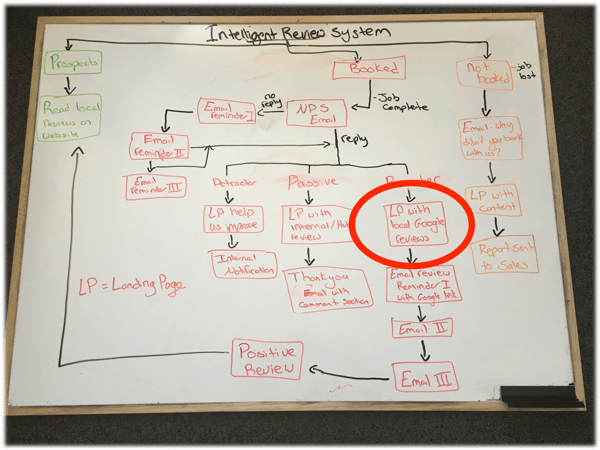 Intelligent Review System
Prospects
Read local
Reviews on
Website
Booked
Job
Complete
NPS
Email
no
reply
Email
Reminder I
Email
Reminder II
Email
Reminder III
reply
Detractor
LP help
us improve
Internal
Notification
Passive
LP with
internal/Hub
review
Thank you
Email with
comment section
LP with
local Google
reviews
Email review
Reminder I
with Google link
Email II
Email III
Positive
Review
Not
booked
job
lost
Email: why
didn't you book
with us?
LP with
content
Report sent
to Sales
LP = Landing Page